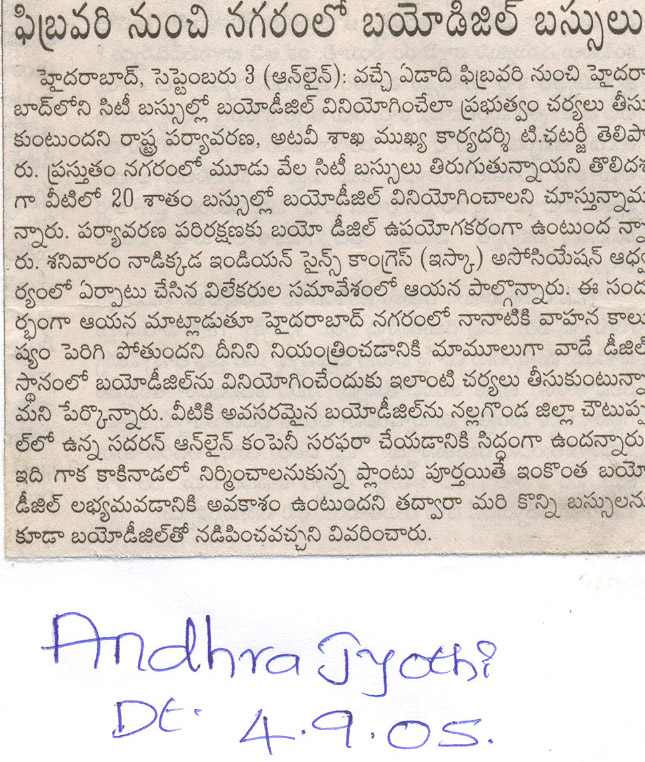 ఫిబ్రవరి నుంచి నగరంలో బయోడీజిల్ బస్సులు
హైదరాబాద్, సెప్టెంబరు 3 (ఆన్‌లైన్): వచ్చే ఏడాది ఫిబ్రవరి నుంచి హైదరా
బాద్‌లోని సిటీ బస్సుల్లో బయోడీజిల్ వినియోగించేలా ప్రభుత్వం చర్యలు తీసు
కుంటుందని రాష్ట్ర పర్యావరణ, అటవీ శాఖ ముఖ్య కార్యదర్శి టి.ఛటర్జీ తెలిపా
రు. ప్రస్తుతం నగరంలో మూడు వేల సిటీ బస్సులు తిరుగుతున్నాయని తొలిదశ
గా వీటిలో 20 శాతం బస్సుల్లో బయోడీజిల్ వినియోగించాలని చూస్తున్నామ
న్నారు. పర్యావరణ పరిరక్షణకు బయో డీజిల్ ఉపయోగకరంగా ఉంటుంద న్నా
రు. శనివారం నాడిక్కడ ఇండియన్ సైన్స్ కాంగ్రెస్ (ఇస్కా) అసోసియేషన్ ఆధ్వ
ర్యంలో ఏర్పాటు చేసిన విలేకరుల సమావేశంలో ఆయన పాల్గొన్నారు. ఈ సంద
ర్భంగా ఆయన మాట్లాడుతూ హైదరాబాద్ నగరంలో నానాటికి వాహన కాలు
ష్యం పెరిగి పోతుందని దీనిని నియంత్రించడానికి మామూలుగా వాడే డీజిల్
స్థానంలో బయోడీజిల్‌ను వినియోగించేందుకు ఇలాంటి చర్యలు తీసుకుంటున్నా
మని పేర్కొన్నారు. వీటికి అవసరమైన బయోడీజిల్‌ను నల్లగొండ జిల్లా చౌటుప్ప
ల్‌లో ఉన్న సదరన్ ఆన్‌లైన్ కంపెనీ సరఫరా చేయడానికి సిద్ధంగా ఉందన్నారు
ఇది గాక కాకినాడలో నిర్మించాలనుకున్న ప్లాంటు పూర్తయితే ఇంకొంత బయో
డీజిల్ లభ్యమవడానికి అవకాశం ఉంటుందని తద్వారా మరి కొన్ని బస్సులను
కూడా బయోడీజిల్‌తో నడిపించవచ్చని వివరించారు.
Andhra Jyothi
Dt. 4.9.05.